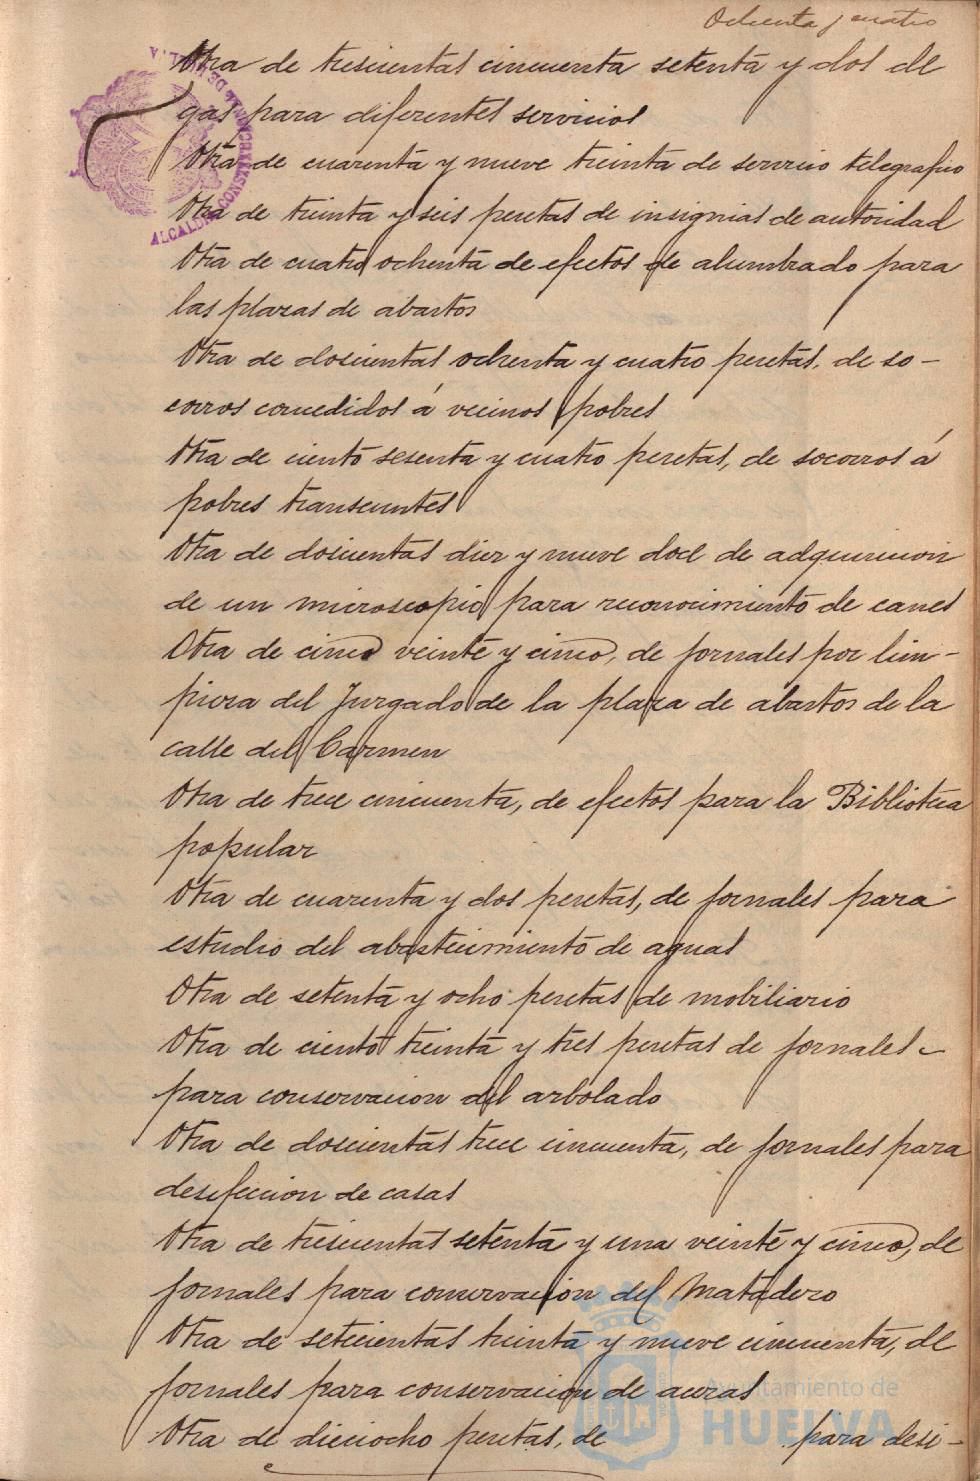 Ochenta y cuatro
Otra de trescientas cincuenta setenta y dos de
gas para diferentes servicios
Otra de cuarenta y nueve treinta de servicio telegrafico
Otra de treinta y seis pesetas de insignias de autoridad
Otra de cuatro ochenta de efectos de alumbrado para
las plazas de abastos
Otra de doscientas ochenta y cuatro pesetas, de so-
corros concedidos á vecinos pobres
Otra de ciento sesenta y cuatro pesetas, de socorros á
pobres transeuntes
Otra de doscientas diez y nueve doce de adquisicion
de un microscopio para reconocimiento de carnes
Otra de cinco veinte y cinco, de jornales por lim-
pieza del Juzgado de la plaza de abastos de la
calle del Carmen
Otra de trece cincuenta, de efectos para la Biblioteca
popular
Otra de cuarenta y dos pesetas, de jornales para
estudio del abastecimiento de aguas
Otra de setenta y ocho pesetas de mobiliario
Otra de ciento treinta y tres pesetas de jornales
para conservacion del arbolado
Otra de doscientas trece cincuenta, de jornales para
desifeccion de casas
Otra de trescientas setenta y una veinte y cinco, de
jornales para conservacion del Matadero
Otra de setecientas treinta y nueve cincuenta, de
jornales para conservacion de aceras
Otra de dieciocho pesetas, de para desi-
ALCALDIA CONSTITUCIONAL DE HUELVA
Ayuntamiento de
HUELVA